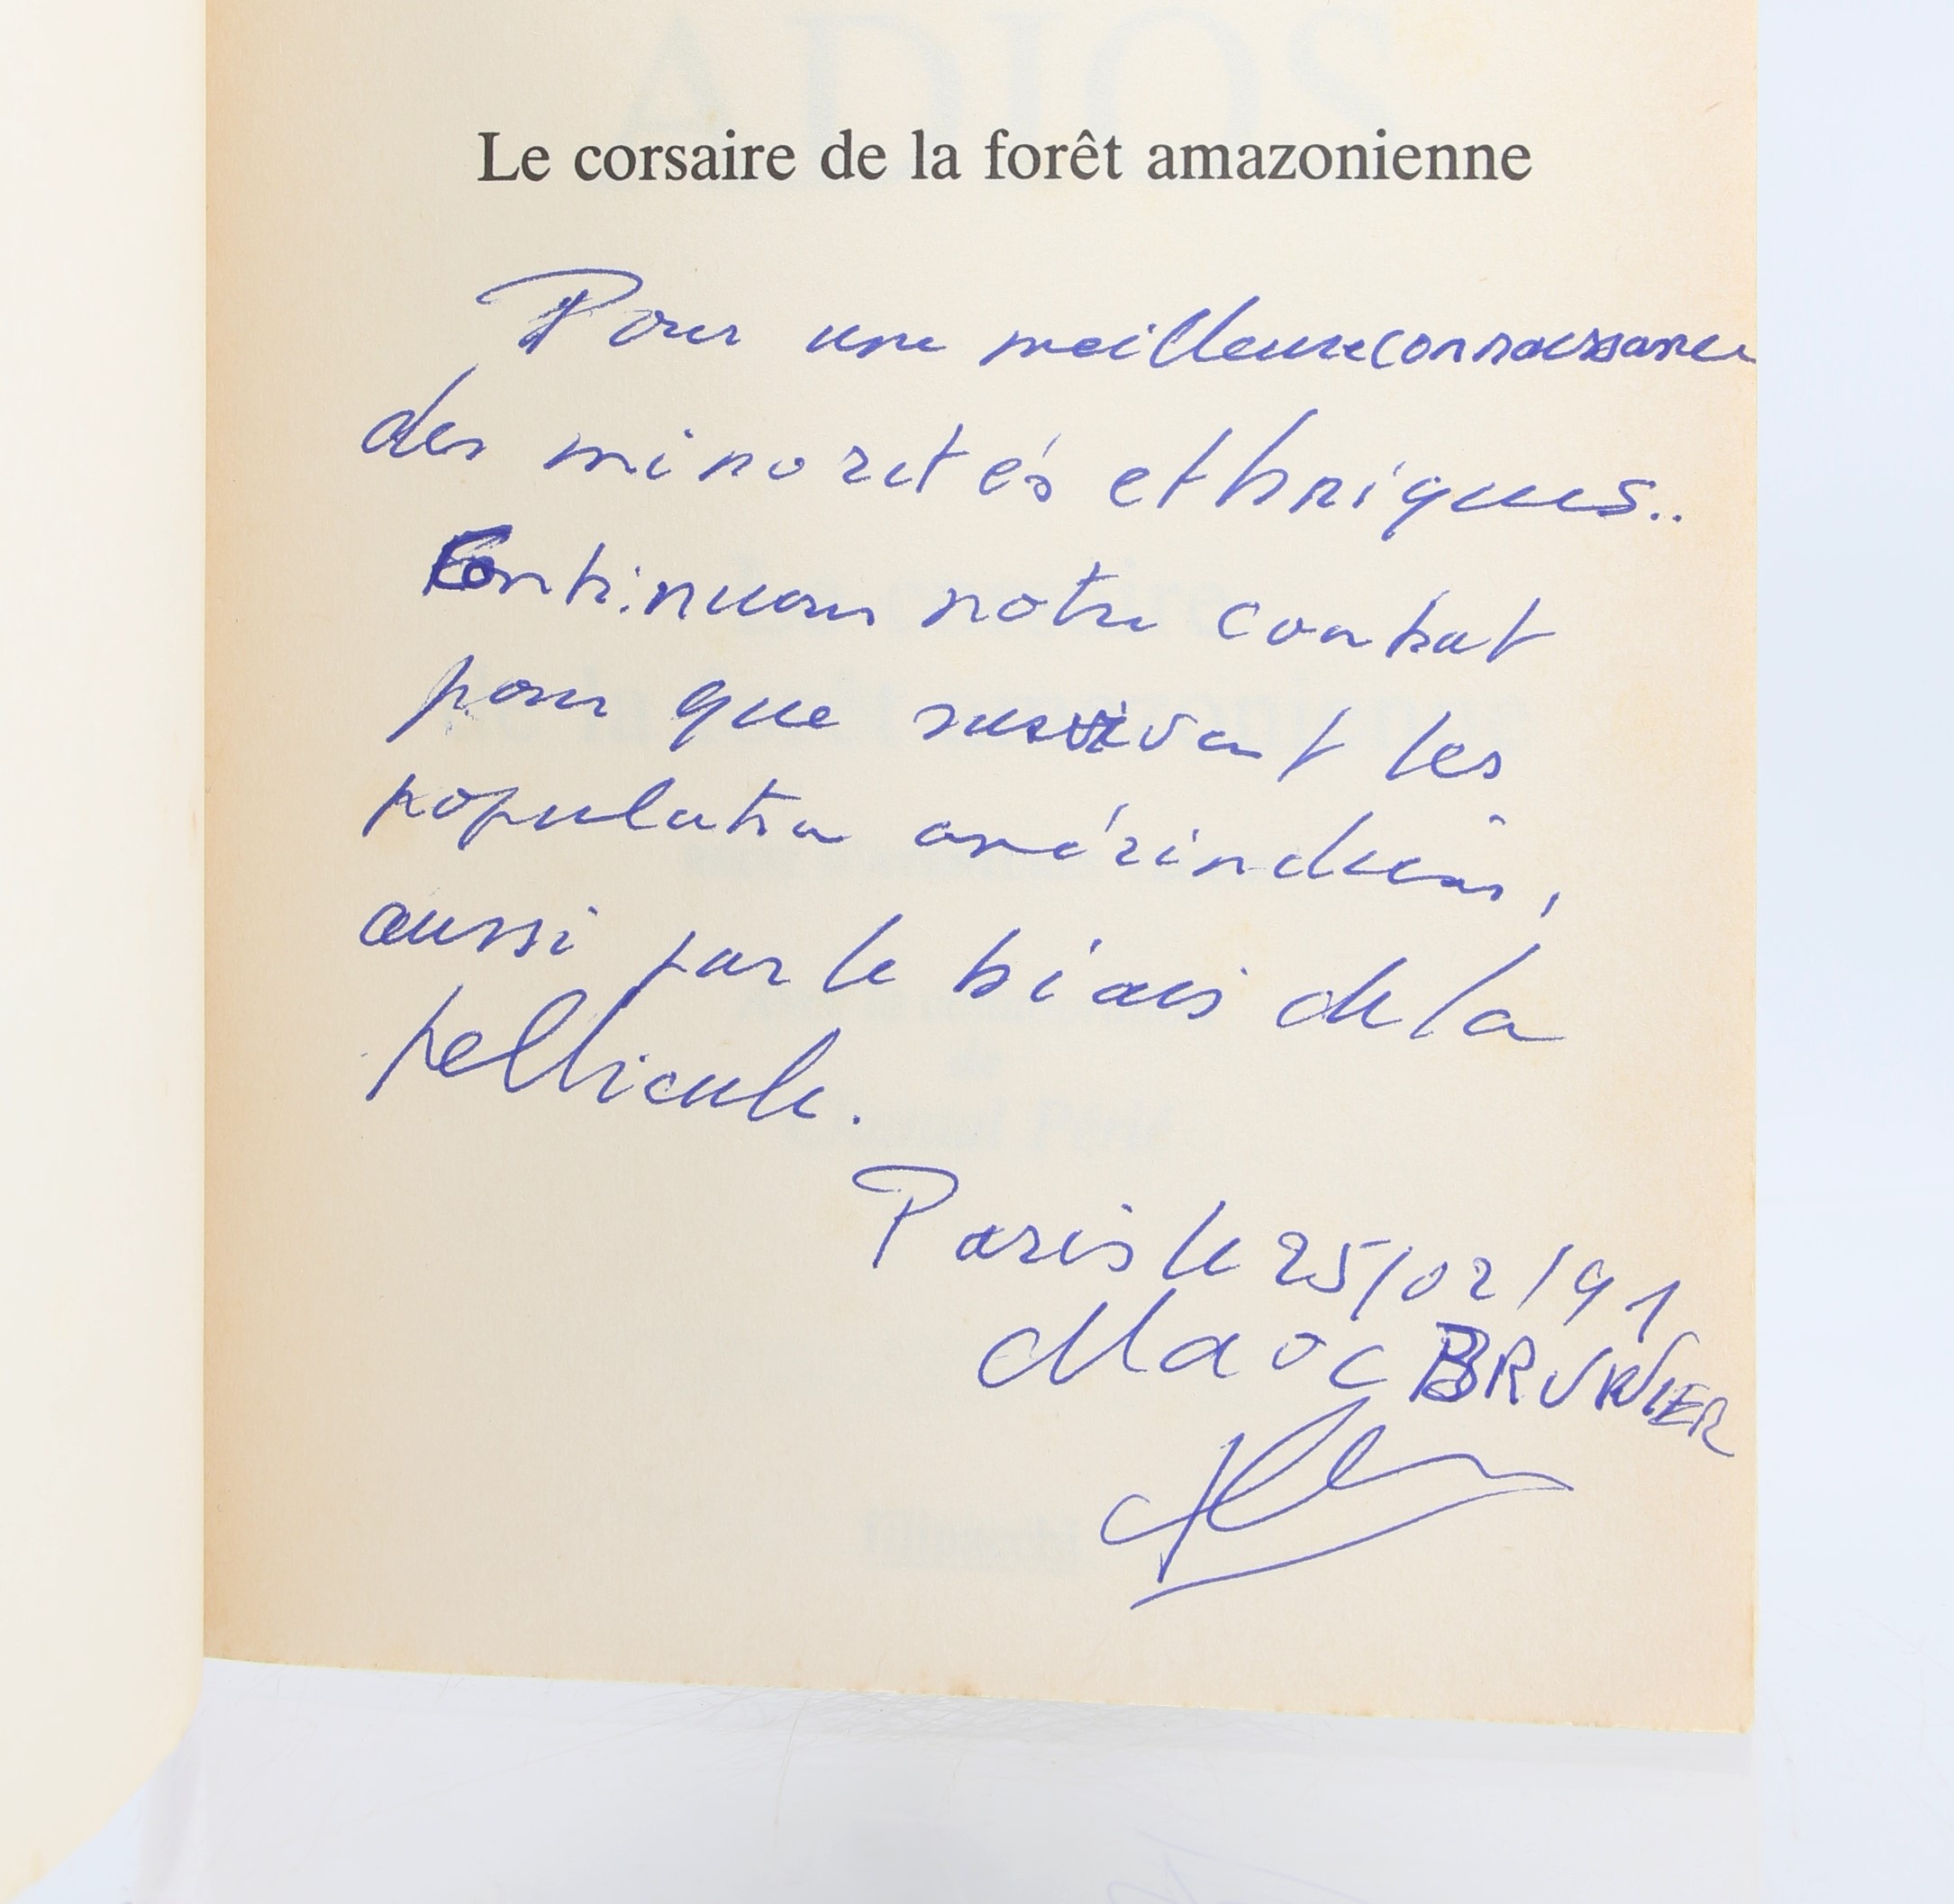 Le corsaire de la forêt amazonienne
Pour une meilleure connaissance
des minorités ethniques..
Continuons notre combat
pour que survivent les
population amérindiens,
aussi par le biais de la
pellicule.
Paris le 25/02/91
Marc BRUNIER